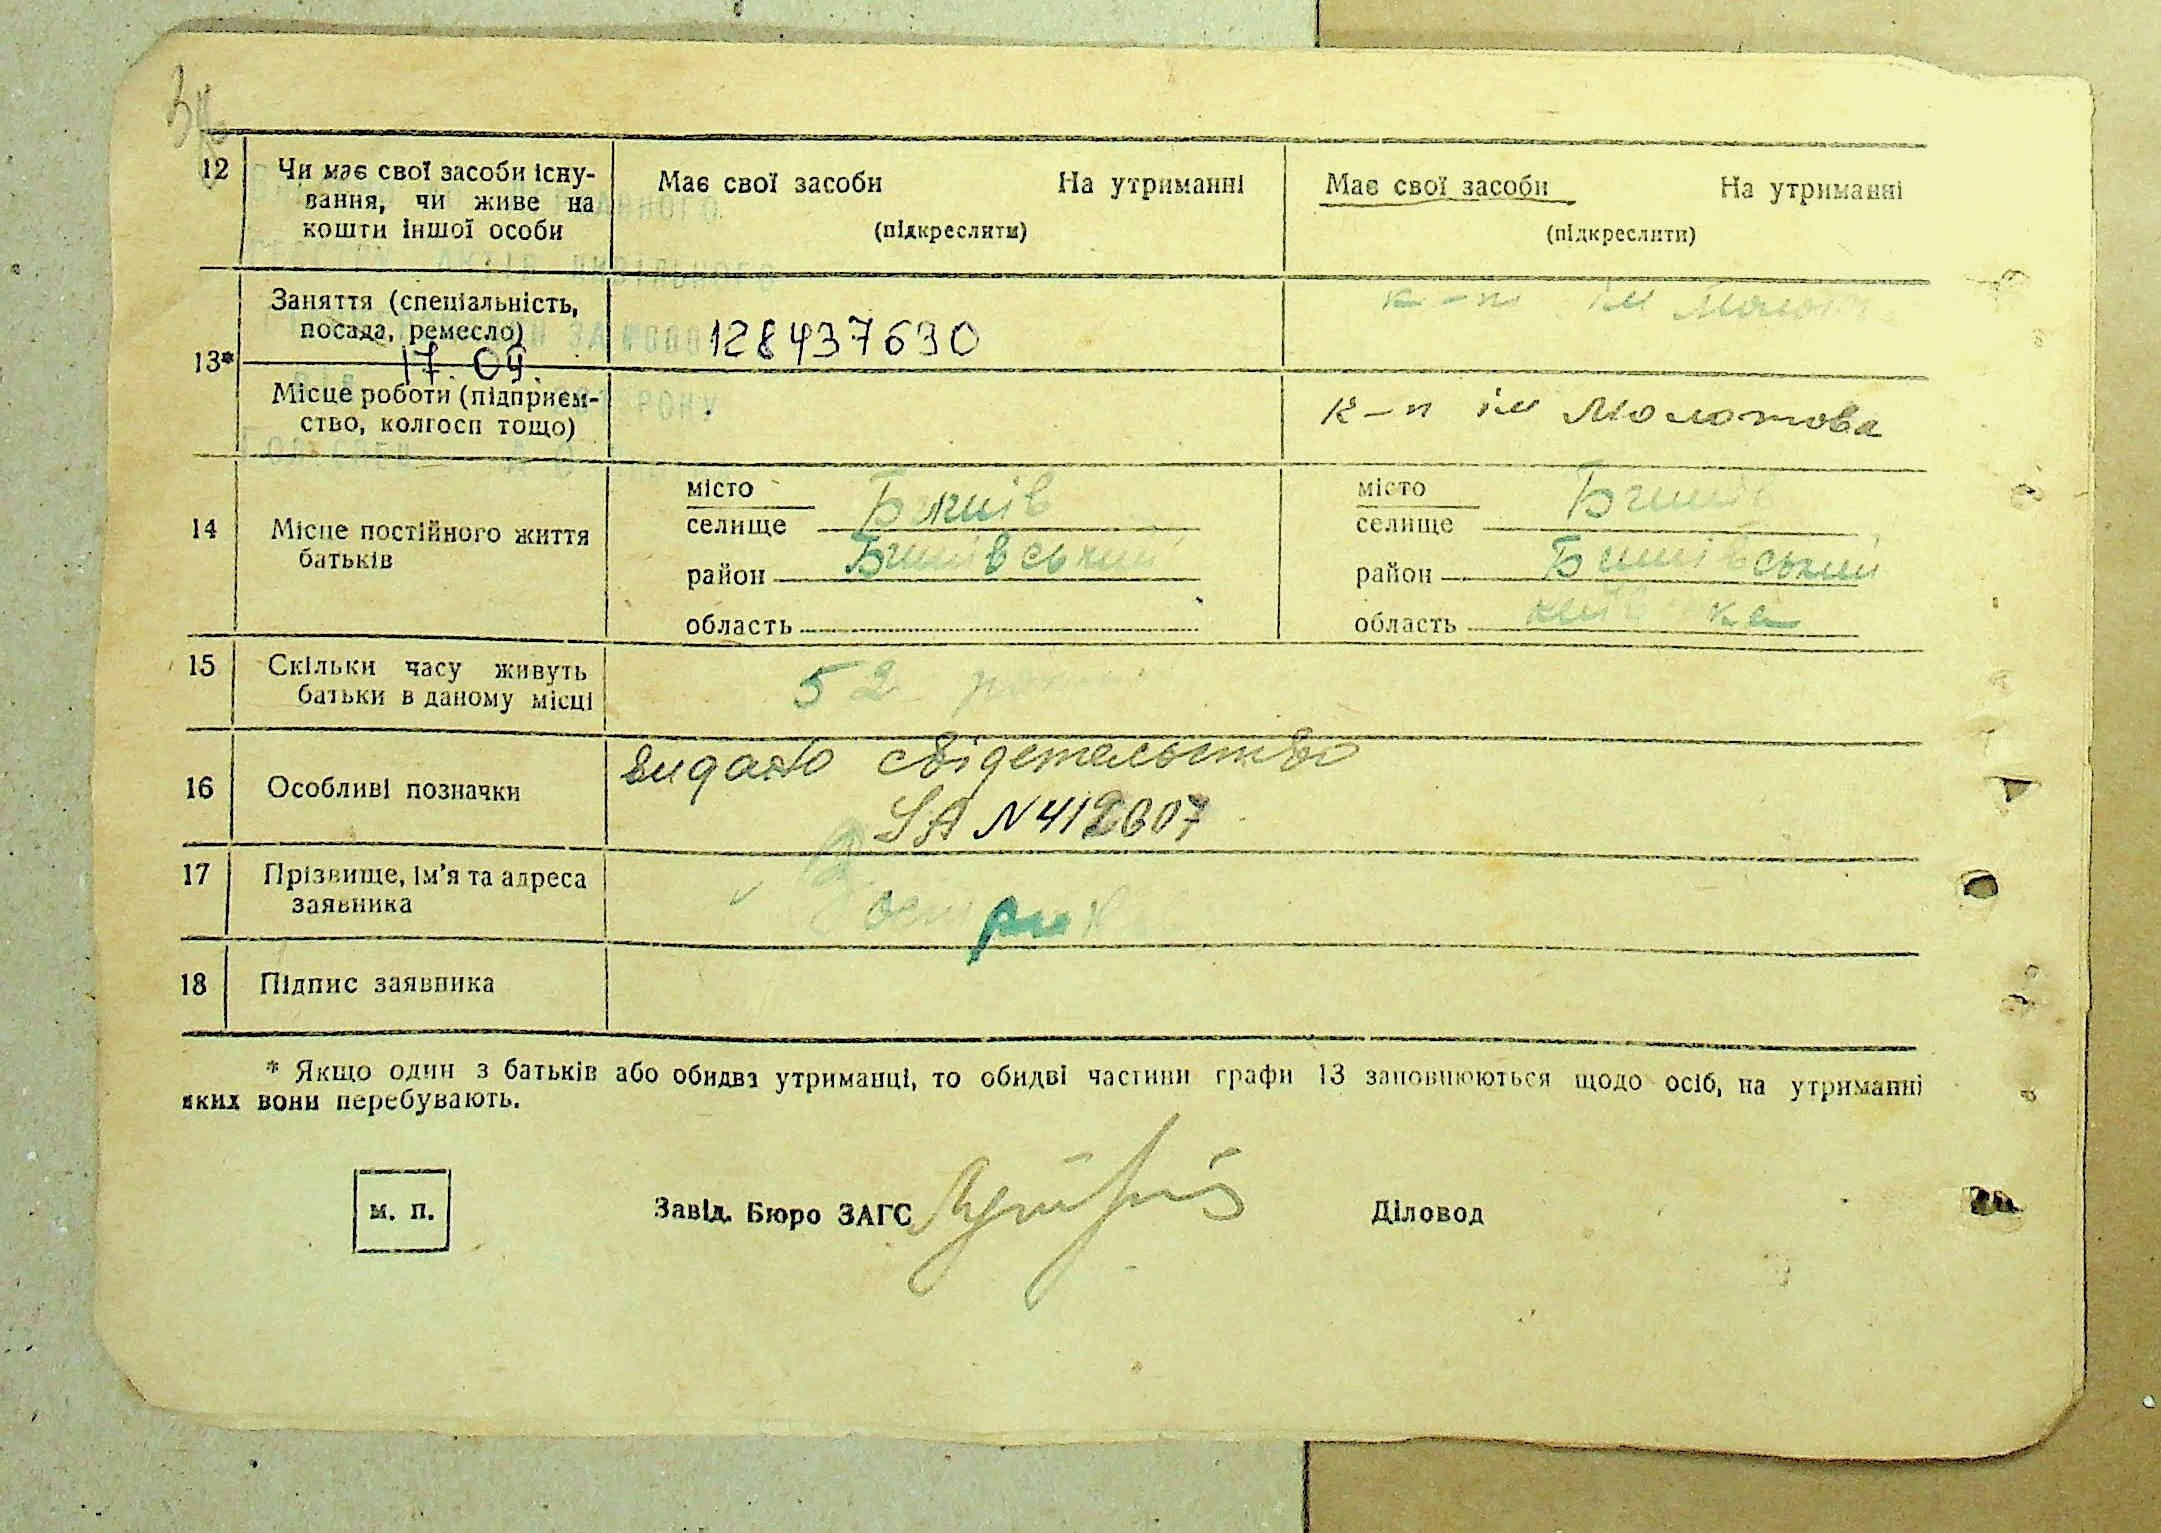 12 Чи має свої засоби існу-
вання, чи живе на
кошти іншої особи
Має свої засоби На утриманні
(підкреслити)
Має свої засоби На утриманні
(підкреслити)
13* Заняття (спеціальність,
посада, ремесло)
17.09.
128437630
к-п ім
Місце роботи (підприєм-
ство, колгосп тощо)
к-п ім Молотова
14 Місце постійного життя
батьків
місто
селище
район
область
місто
селище
район
область
15 Скільки часу живуть
батьки в даному місці
52
16 Особливі позначки
видано свідетельство
N 412607
17 Прізвище, ім’я та адреса
заявника
18 Підпис заявника
* Якщо один з батьків або обидва утриманці, то обидві частини графи 13 заповнюються щодо осіб, на утриманні
яких вони перебувають.
м. п.
Завід. Бюро ЗАГС
Діловод